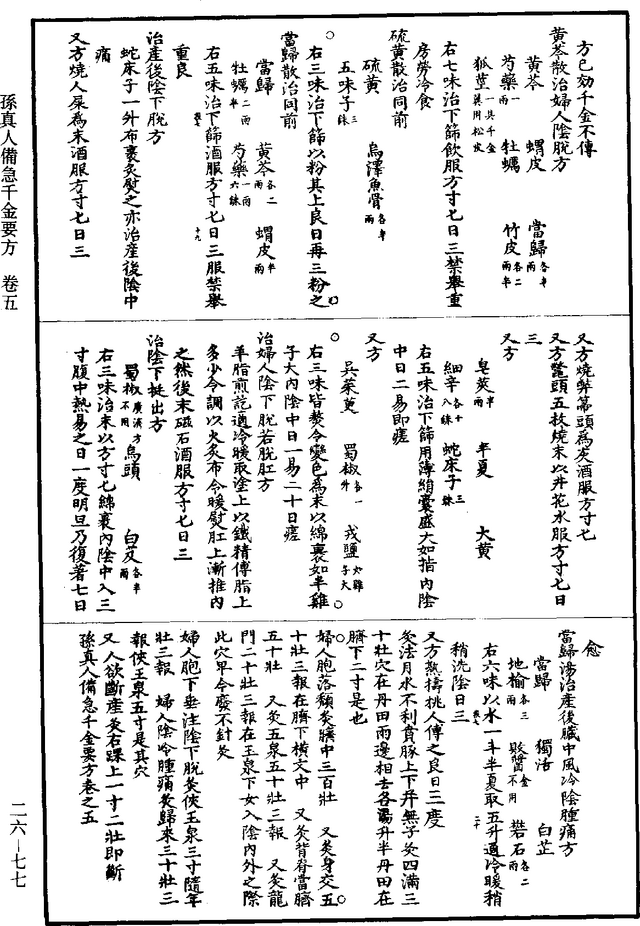 孫真人備急千金要方 卷五
方已効千金不傳
黄芩散治婦人陰脫方
黄芩 蝟皮 當歸各半兩
芍藥一兩 牡蠣 竹皮各二兩半
狐莖一具千金翼用松皮
右七味治下篩飲服方寸匕日三禁舉重
房勞冷食
硫黄散治同前
硫黄 烏澤魚骨各半兩
五味子三銖
右三味治下篩以粉其上良日再三粉之
當歸散治同前
當歸 黄芩各二兩 蝟皮半兩
牡蠣二兩半 芍藥一兩六銖
右五味治下篩酒服方寸匕日三服禁舉
重良
治產後陰下脫方
蛇床子一升布裹炙熨之亦治產後陰中
痛
又方燒人屎為末酒服方寸匕日三
又方燒弊帚頭為灰酒服方寸匕
又方鱉頭五枚燒末以井花水服方寸匕日
三
又方
皂莢半兩 半夏 大黄
細辛各十八銖 蛇床子三銖
右五味治下篩用薄絹囊盛大如指內陰
中日二易即瘥
又方
吳茱萸 蜀椒各一升 戎鹽如雞子大
右三味皆熬令變色為末以綿裹如半雞
子大內陰中日一易二十日瘥
治婦人陰下脫若脫肛方
羊脂煎訖適冷暖取塗上以鐵精傅脂上
多少令調以火炙布令暖熨肛上漸推內
之然後末磁石酒服方寸匕日三
治陰下挺出方
蜀椒 烏頭 白芨各半兩
右三味治末以方寸匕綿裹內陰中入三
寸腹中熱易之日一度明旦乃復著七日
愈
當歸湯治產後臟中風冷陰腫痛方
當歸 獨活 白芷
地榆各三兩 敗醬千金不用 礬石各二兩
右六味以水一斗半煮取五升適冷暖稍
稍洗陰日三
又方熟擣桃人傅之良日三度
灸法月水不利賁豚上下并無子灸四滿三
十壯穴在丹田兩邊相去各開寸半丹田在
臍下二寸是也
婦人胞落頹灸臍中三百壯 又灸身交五
十壯三報在臍下橫文中 又灸背脊當臍
五十壯 又灸玉泉五十壯三報 又灸龍
門二十壯三報在玉泉下女入陰內外之際
此穴卑今廢不針灸
婦人胞下垂注陰下脫灸俠玉泉三寸隨年
壯三報 婦人陰冷腫痛灸歸來三十壯三
報俠玉泉五寸是其穴
又人欲斷產灸右踝上一寸三壯即斷
孫真人備急千金要方卷之五
二六—七七